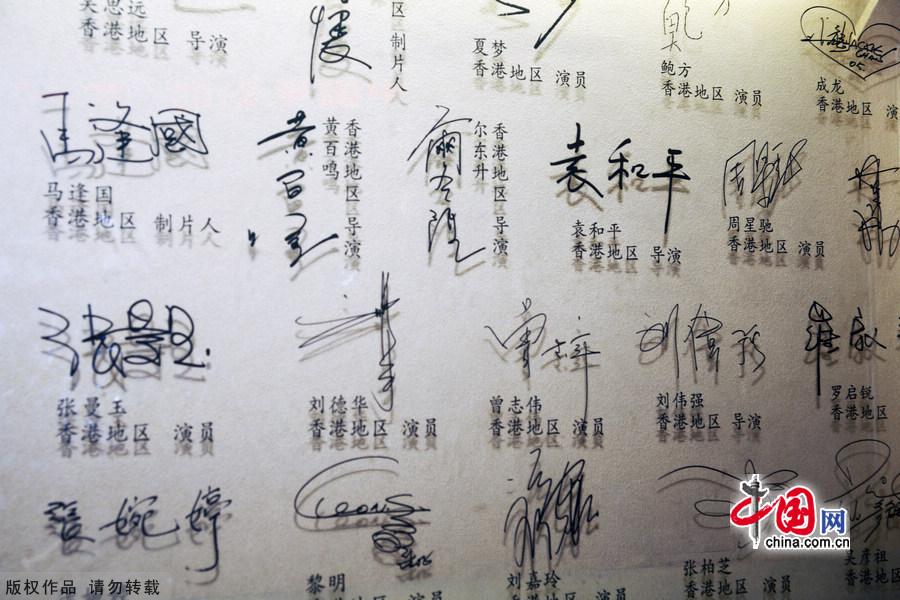 思远
香港地区 导演
制片人
夏梦
香港地区 演员
鲍方
香港地区 演员
JACKIE CHAN
05
成龙
香港地区 演员
馬逢國
马逢国
香港地区 制片人
黄百鸣
香港地区 导演
尔东升
香港地区 导演
袁和平
袁和平
香港地区 导演
周星驰
香港地区 演员
张曼玉
香港地区 演员
刘德华
香港地区 演员
曾志伟
香港地区 演员
刘伟强
香港地区 导演
罗启锐
香港地区
張婉婷
Leon
黎明
香港地区 演员
刘嘉玲
香港地区 演员
张柏芝
香港地区 演员
吴彦祖
香港地区
中国网
china.com.cn
版权作品 请勿转载